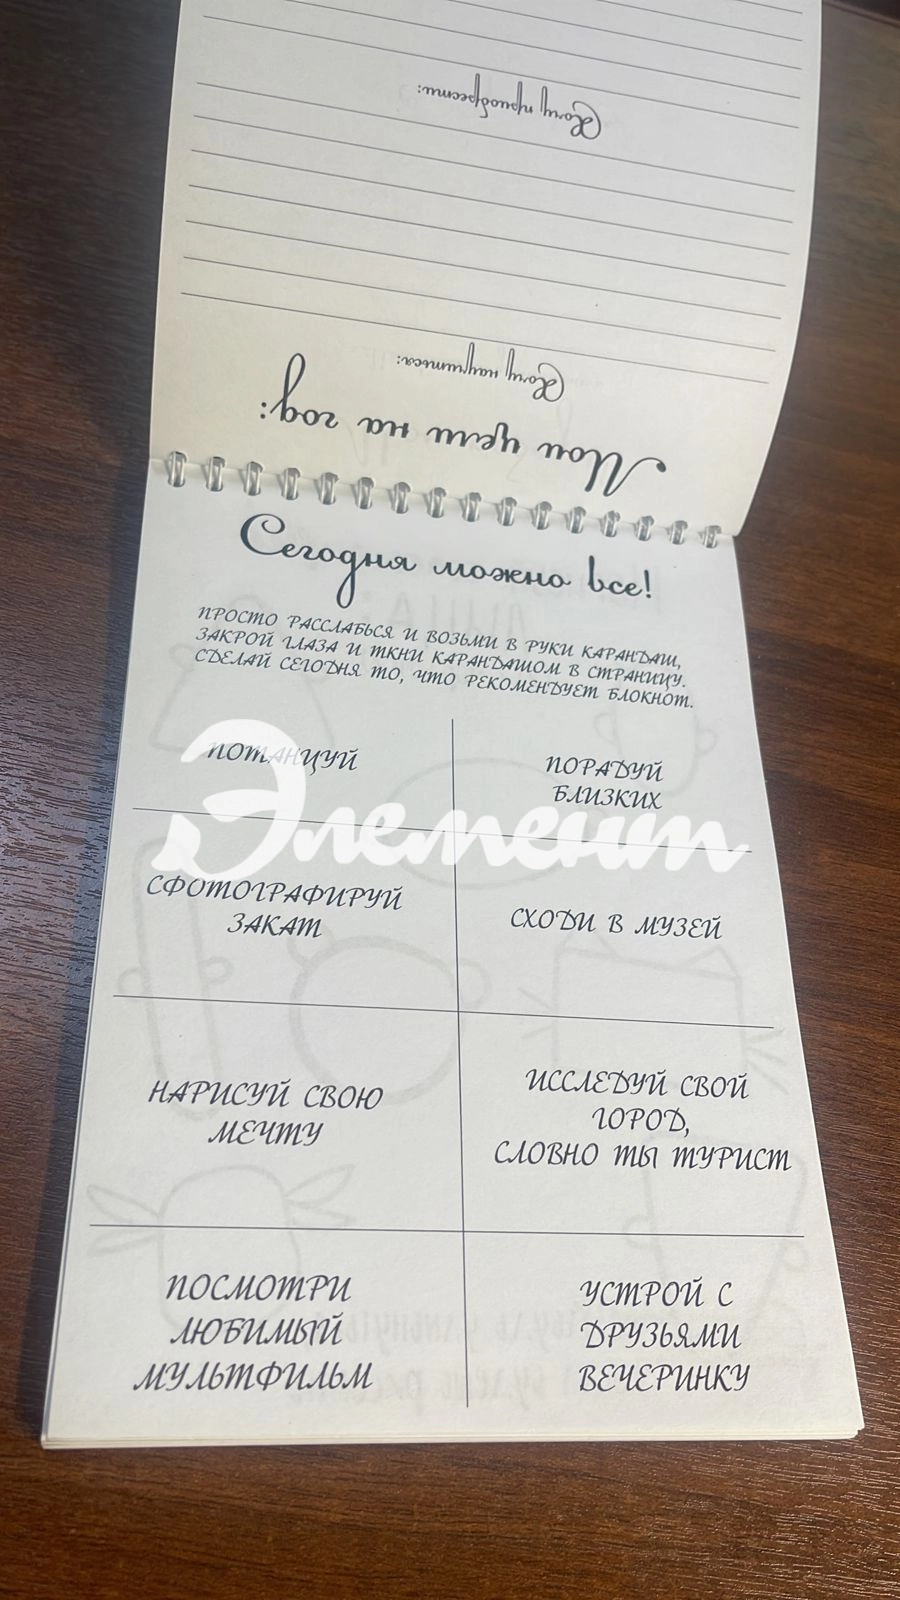 Хочу приобрести:
Хочу научиться:
Мои цели на год:
Сегодня можно все!
ПРОСТО РАССЛАБЬСЯ И ВОЗЬМИ В РУКИ КАРАНДАШ,
ЗАКРОЙ ГЛАЗА И ТКНИ КАРАНДАШОМ В СТРАНИЦУ.
СДЕЛАЙ СЕГОДНЯ ТО, ЧТО РЕКОМЕНДУЕТ БЛОКНОТ.
ПОТАНЦУЙ
ПОРАДУЙ
БЛИЗКИХ
Элемент
СФОТОГРАФИРУЙ
ЗАКАТ
СХОДИ В МУЗЕЙ
НАРИСУЙ СВОЮ
МЕЧТУ
ИССЛЕДУЙ СВОЙ
ГОРОД,
СЛОВНО ТЫ ТУРИСТ
ПОСМОТРИ
ЛЮБИМЫЙ
МУЛЬТФИЛЬМ
УСТРОЙ С
ДРУЗЬЯМИ
ВЕЧЕРИНКУ